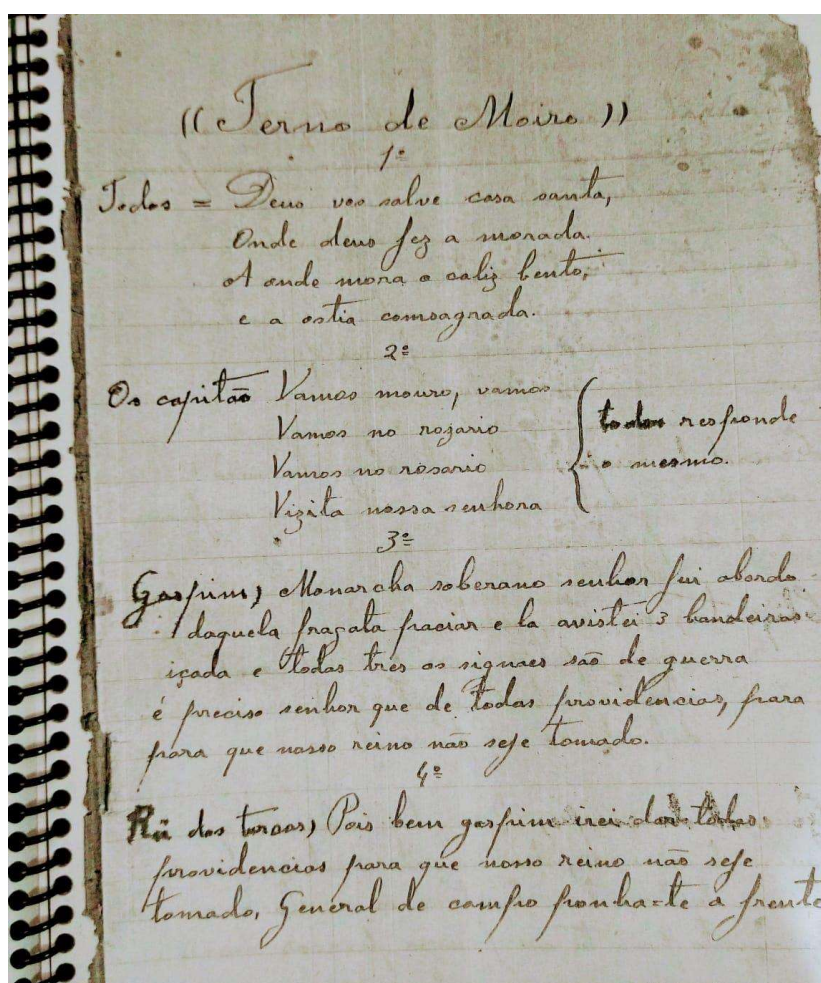 ((Terno de Moiro))
1º
Todos = Deus vos salve casa santa,
Onde deus fez a morada.
A onde mora o caliz bento,
e a ostia comsagrada.
2º
Os capitão Vamos mouro, vamos
Vamos no rozario
Vamos no rosario
Vizita nossa senhora
todos responde
o mesmo.
3º
Gaspim) Monarcha soberano senhor fui abordo
daquela fragata passiar e la avistei 3 bandeiras
içada e todas tres os signaes são de guerra
é preciso senhor que de todas providencias, para
para que nosso reino não seje tomado.
4º
Rei dos turcos) Pois bem gaspim irei dar todas
providencias para que nosso reino não seje
tomado, General de campo ponha-te a frente